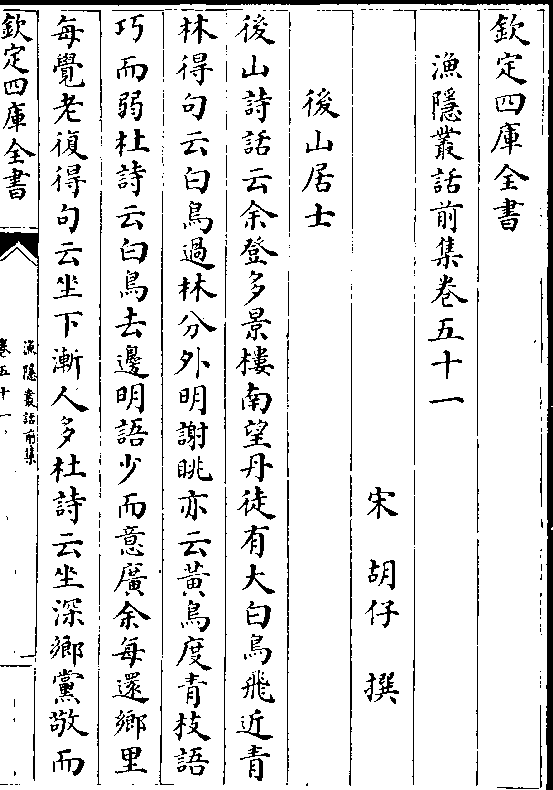 欽定四庫全書
漁隱叢話前集卷五十一
宋 胡仔 撰
後山居士
後山詩話云余登多景樓南望丹徒有大白鳥飛近青
林得句云白鳥過林分外明謝眺亦云黃鳥度青枝語
巧而弱杜詩云白鳥去邊明語少而意廣余每還鄉里
每覺老復得句云坐下漸人多杜詩云坐深鄉黨敬而
欽定四庫全書
漁隱叢話前集
卷五十一
一